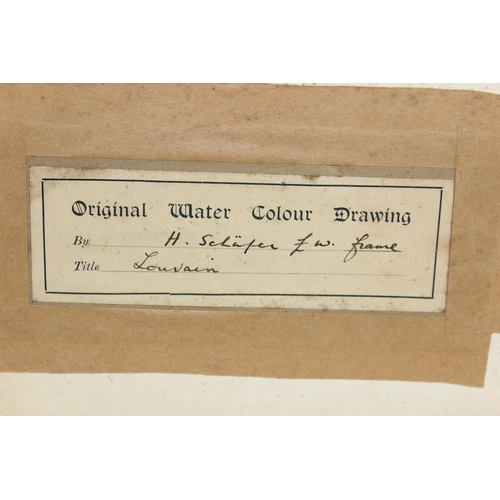 Original Water Colour Drawing
By H. Schäfer f w. frame
Title Louvain